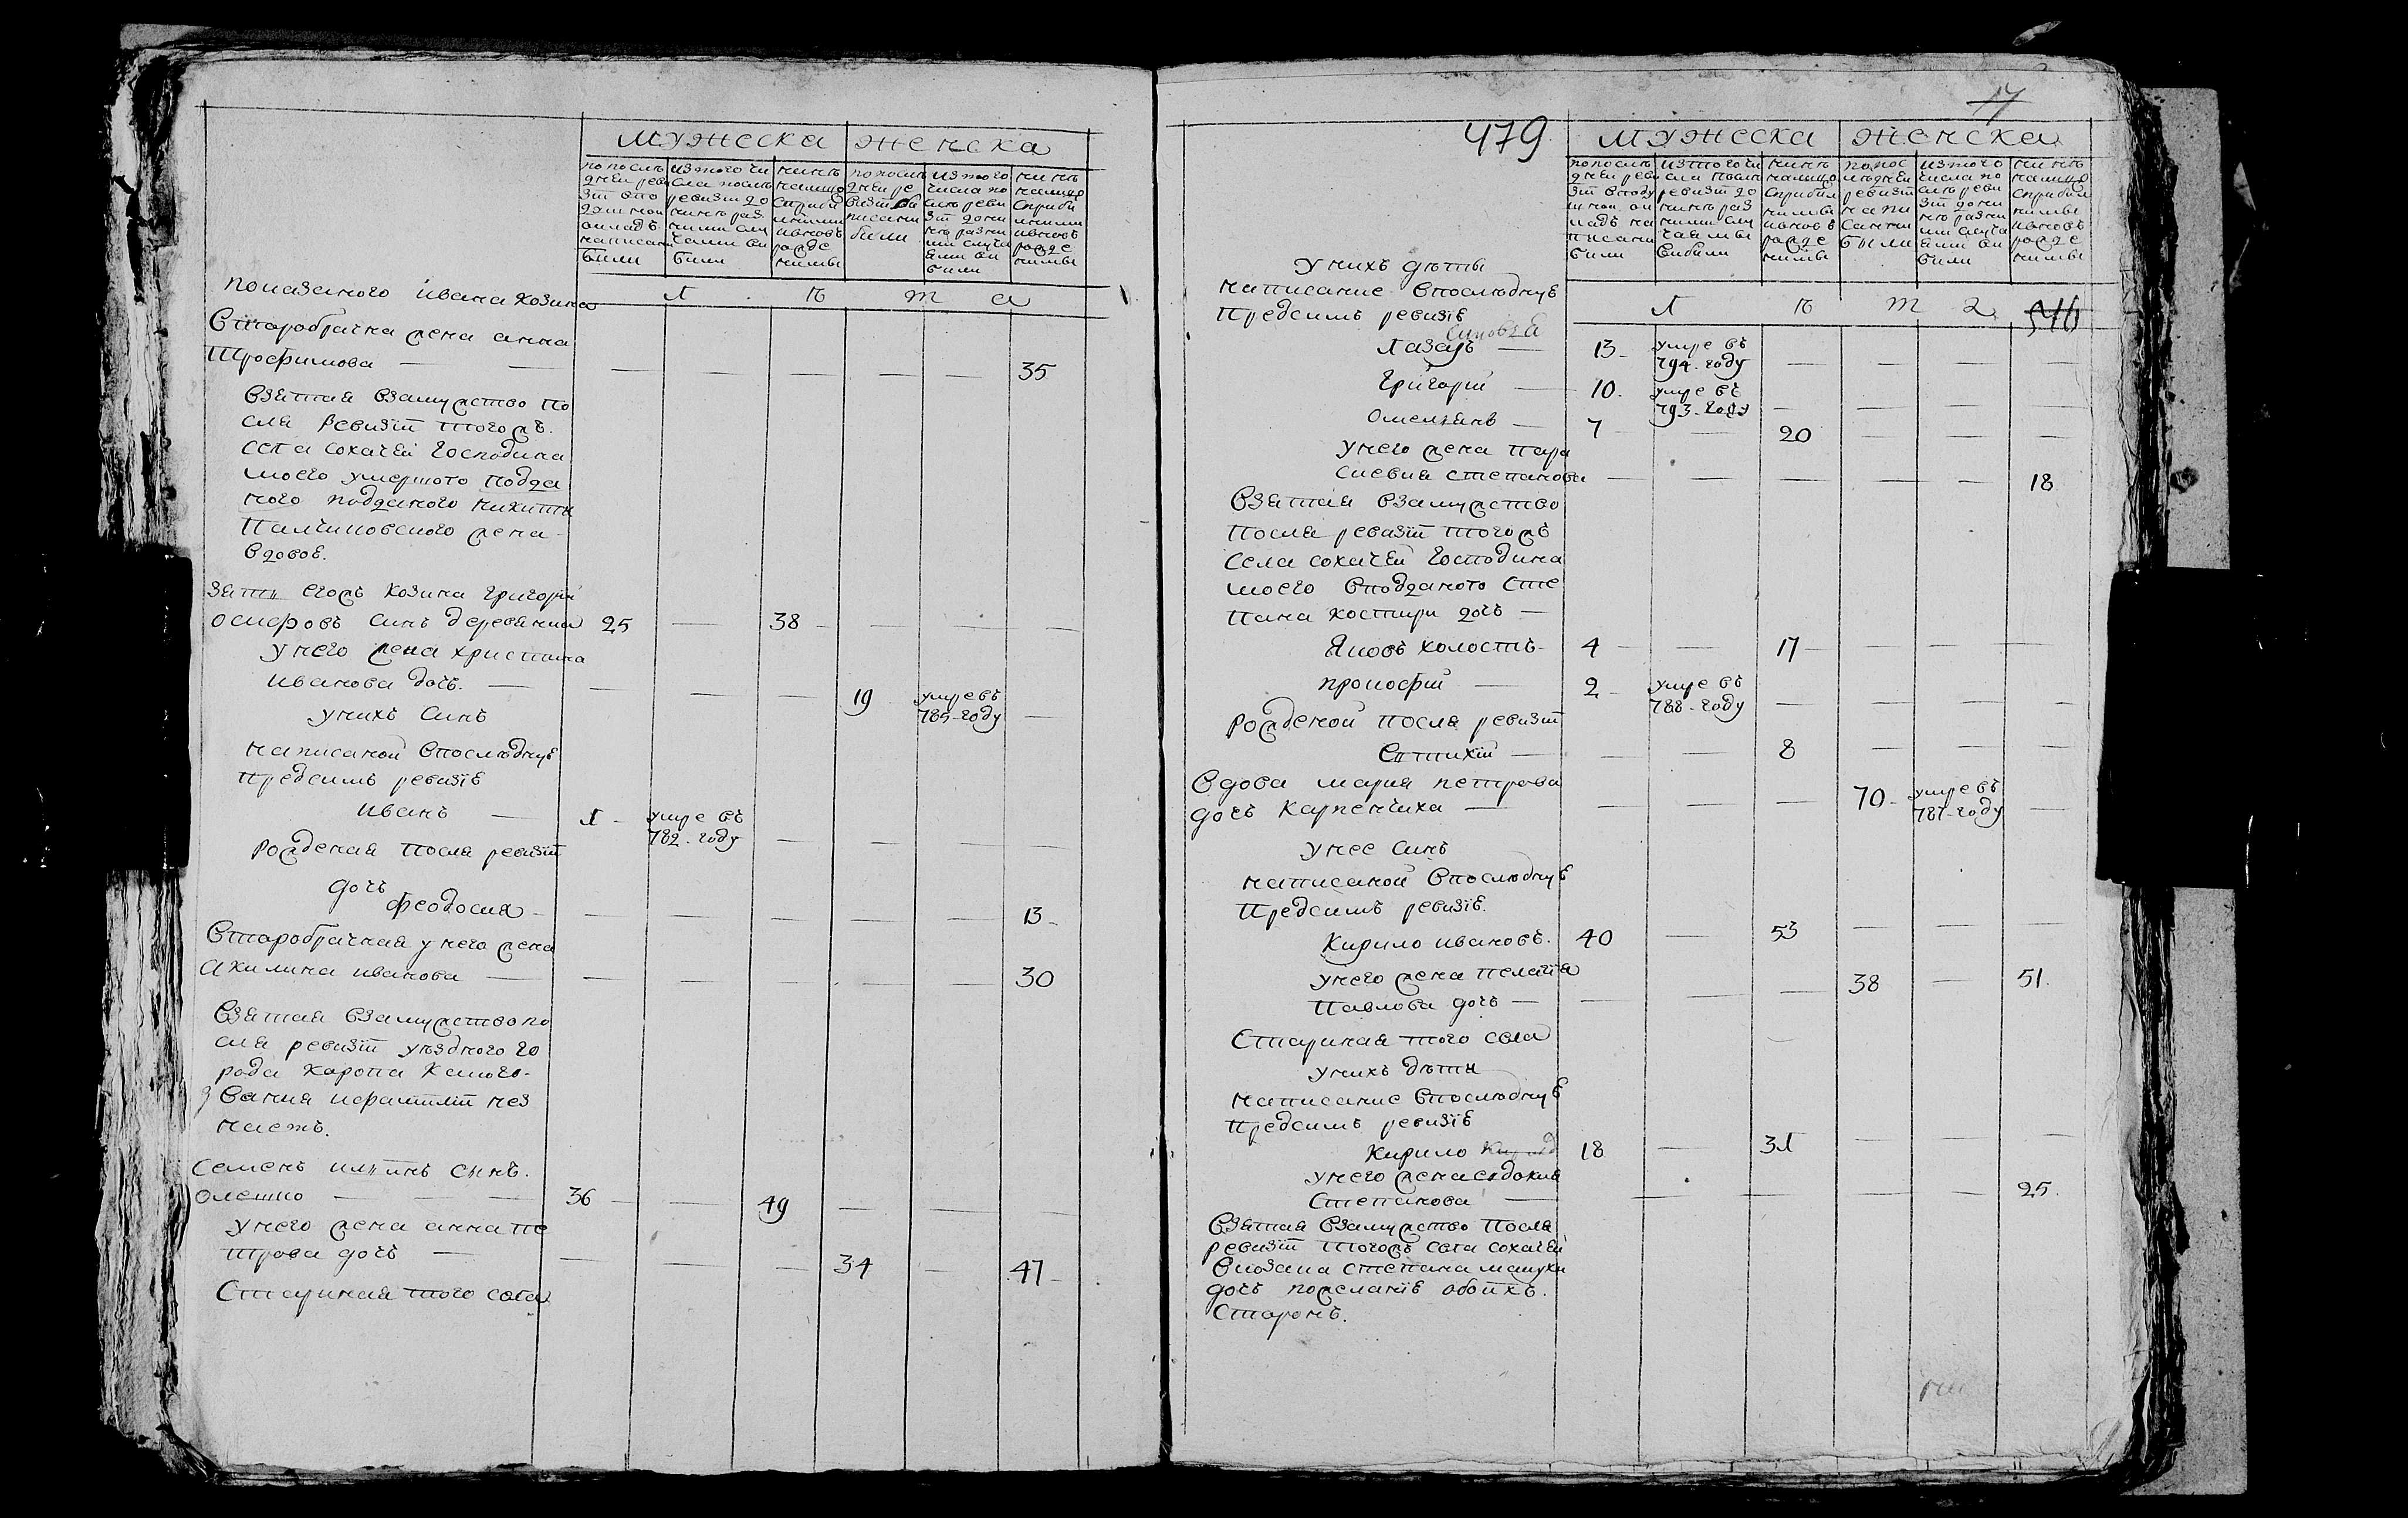 мужеска женска
по послѣ дней реви зіи впо душной окладъ написани били
изтого чи сла послѣ ревизіи до нинѣ раз ними слу чаями ви били
нинѣ налицо съ приб илими ивновъ рожде нимы
по послѣ дней ре визіи на писани были
изтого числа по слѣ реви зіи до ни нѣ разни ми случа ями ви били
нинѣ налицо съ приби лними ивновъ рожде нимы
показаного ивана козина
л ѣ т а
Второбрачна жена анна
Трофимова — — — — — — — 35
взятая взамужство по
сля ревизіи тогожъ
села сохачей господина
моего умершого подда
ного подданого никиты
Палчиковского жена
вдовое.
зять егожъ козина григорій
осифовъ синъ деревянка 25 — 38 — — —
унего жена христина
иванова дочъ. — — — — 19 умре въ 785-году —
унихъ синъ
написаной впослѣднуѣ
предсимъ ревизіѣ
иванъ — 1 - умре въ 782-году — — — —
рожденая посля ревизіи
дочъ
феодосия - — — — — — 13 -
Второбрачная унего жена
Акилина иванова — — — — — — 30
взятая взамужство по
сля ревизіи уѣздного го
рода коропа каного-
звания
насть.
Семенъ илъинъ синъ.
олешко — — — 36 — 49 — — —
унего жена анна пе
трова дочъ — — — — 34 — 47 -
Старинная того села
17
479
мужеска женска
по послѣ дней реви зіи вподу шной ок ладъ на писани били
изтого чи сла послѣ ревизіи до нинѣ раз ними слу чаямы вибили
нинѣ налицо съ прибил нимы ивновъ рожде нимы
по пос лѣдней ревизіи напи санни были
изтого числа по слѣ реви зіи до ни нѣ разни ми случа ями ви били
нинѣ налицо съ прибил нимы ивновъ рожде нимы
унихъ дѣты
написание впослѣднуѣ
предсимъ ревизіѣ
л ѣ т а
синовѣя
Лазарь — 13 - умре въ 794-году — — — —
Григорій — 10. умре въ 793-году — — — —
Омелянъ — 7 — 20 — — —
унего жена пара
скевия степанова — — — — — 18
взятая взамужство
посля ревизіи тогожъ
села сохачей господина
моего вподданого сте
пана костири дочъ —
Яковъ холостъ - 4 — 17 — — —
прокофій — 2 - умре въ 788-году — — — —
рожденой посля ревизіи
Евтихій — — — 8 — — —
вдова мария петрова
дочъ карпенчиха — — — — 70 - умре въ 787-году —
унее синъ
написаной впослѣднуѣ
предсимъ ревизіѣ.
Кирило ивановъ. 40 — 53 — — —
унего жена пелагія
павлова дочъ — — — — 38 — 51.
Старинная того села
унихъ дѣти
написание впослѣднуѣ
предсимъ ревизіѣ
Кирило 18 — 31 — — —
унего жена евдокия
степанова — — — — — — 25.
взятая взамужство посля
ревизіи тогожъ села сохачей
вкозака степана мащухи
дочъ пожеланіѣ обоихъ.
сторонъ.